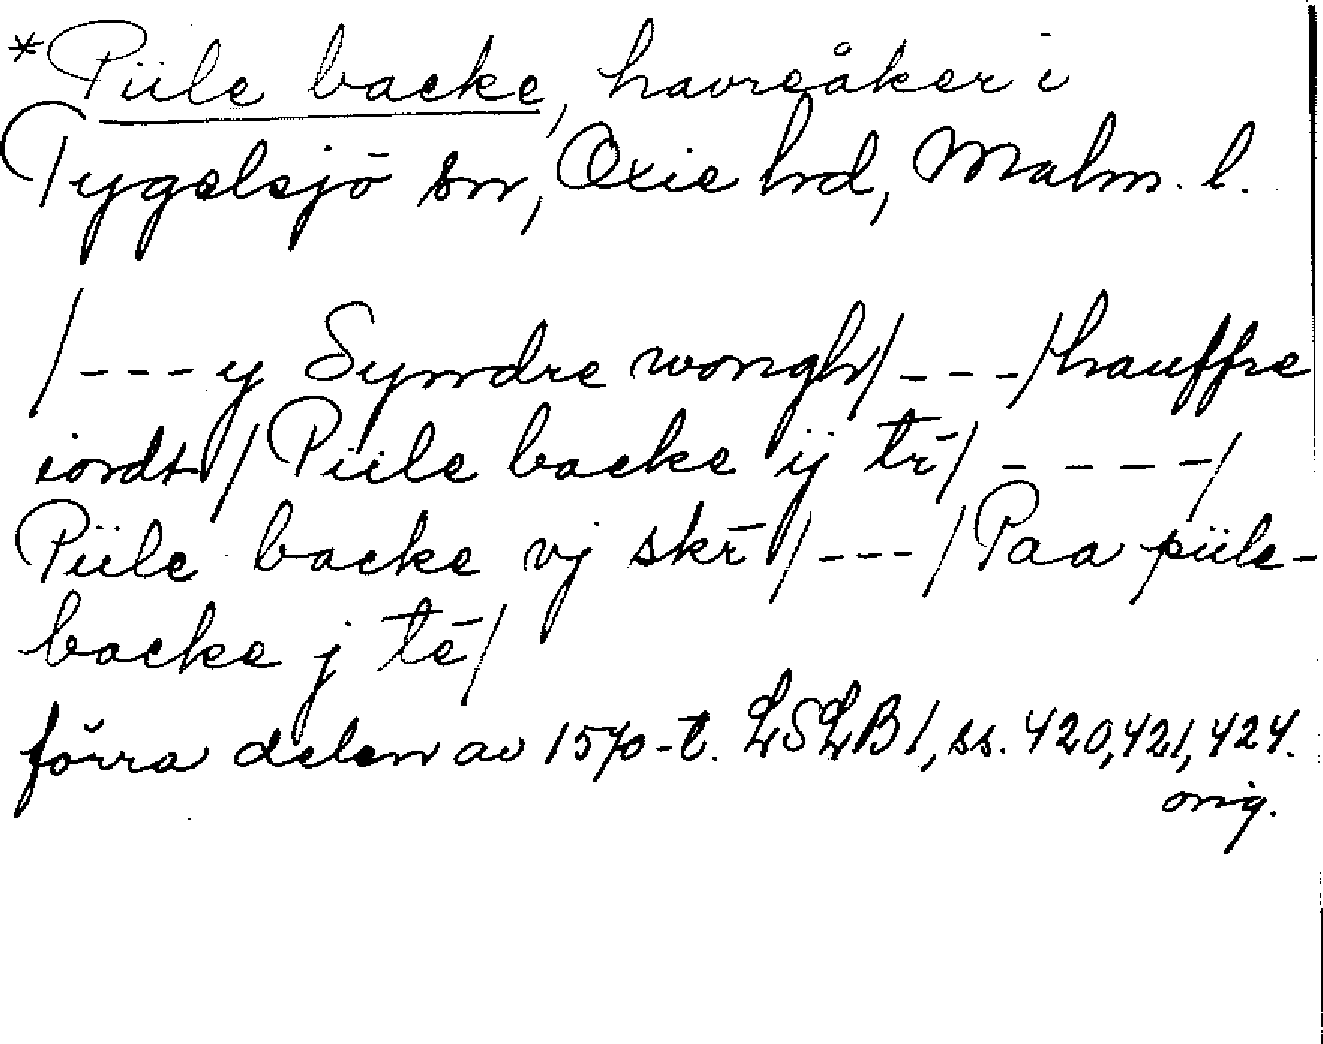 *Piile backe, havreåker i
Tygelsjö sn, Oxie hd, Malm. l.
/---y Syndre wongh/---/hauffre
iordt/Piile backe ij tr̄/----/
Piile backe vj skr̄/---/Paa piile-
backe j tē/
förra delen av 1570-t. LSLB1, ss. 420, 421, 424.
orig.